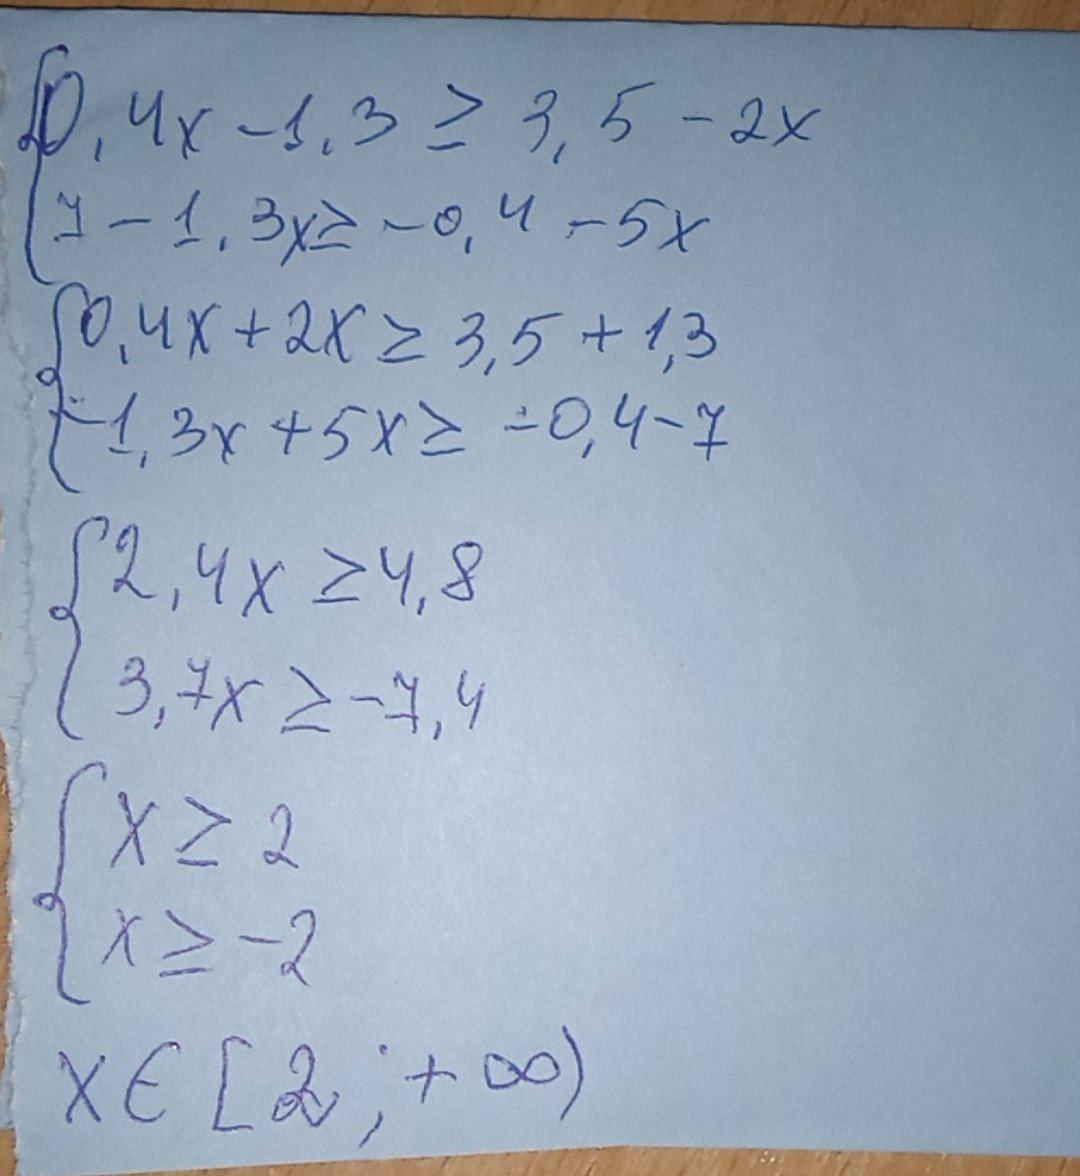 0,4x - 1,3 ≥ 3,5 - 2x
7 - 1,3x ≥ -0,4 - 5x
0,4x + 2x ≥ 3,5 + 1,3
-1,3x + 5x ≥ -0,4 - 7
2,4x ≥ 4,8
3,7x ≥ -7,4
x ≥ 2
x ≥ -2
x ∈ [2; +∞)